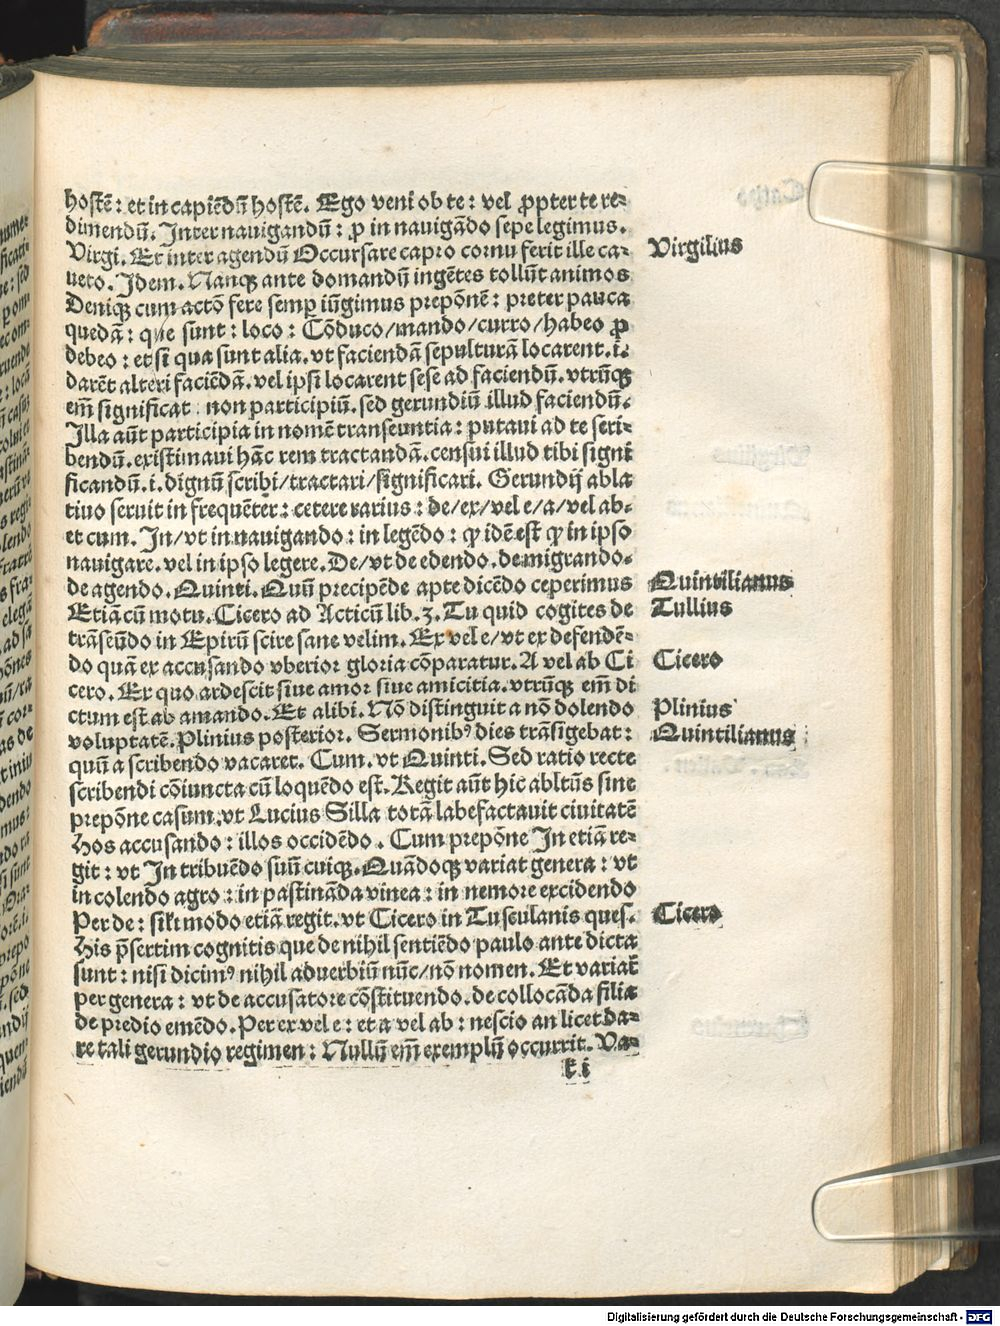 hostē: et in capiēdū hostē. Ego veni ob te: vel ꝓpter te re-
dimendū. Inter nauigandū: ꝓ in nauigādo sepe legimus.
Virgi. Et inter agendū Occursare capro cornu ferit ille ca-
ueto. Idem. Nanqꝫ ante domandū ingētes tollūt animos
Deniqꝫ cum actōꝫ fere semꝑ iūgimus prepōnē: preter pauca
quedā: que sunt: loco: Cōduco/mando/curro/habeo ꝓ
debeo: et si qua sunt alia. vt faciendā sepulturā locarent. i.
darēt alteri faciēdā. vel ipsi locarent sese ad faciendū. vtrūqꝫ
em̄ significat: non participiū. sed gerundiū illud faciendū.
Illa aūt participia in nomē transeuntia: putaui ad te scri-
bendū. existimaui hāc rem tractandā. censui illud tibi signi
ficandū. i. dignū scribi/tractari/significari. Gerundij abla
tiuo seruit in frequēter: cetere rarius: de/ex/vel e/a/vel ab-
et cum. In/vt in nauigando: in legēdo: ꝙ idē est ꝙ in ipso
nauigare. vel in ipso legere. De/vt de edendo. de migrando.
de agendo. Quinti. Quū precipēde apte dicēdo ceperimus
Etiā cū motu. Cicero ad Acticū lib. 3. Tu quid cogites de
trāseūdo in Epirū scire sane velim. Ex vel e/vt ex defendē-
do quā ex accusando vberior gloria cōparatur. A vel ab Ci
cero. Ex quo ardescit siue amor siue amicitia. vtrūqꝫ em̄ di
ctum est ab amando. Et alibi. Nō distinguit a nō dolendo
voluptatē. Plinius posterior. Sermonibꝰ dies trāsigebat:
quū a scribendo vacaret. Cum. vt Quinti. Sed ratio recte
scribendi cōiuncta cū loquēdo est. Regit aūt hic abltūs sine
prepōne casum. vt Lucius Silla totā labefactauit ciuitatē
Hos accusando: illos occidēdo. Cum prepōne In etiā re-
git: vt In tribuēdo suū cuiqꝫ. Quādoqꝫ variat genera: vt
in colendo agro: in pastināda vinea: in nemore excidendo
Per de: sil'r modo etiā regit. vt Cicero in Tusculanis ques.
His p̄sertim cognitis que de nihil sentiēdo paulo ante dicta
sunt: nisi dicimꝰ nihil aduerbiū nūc/nō nomen. Et variat̄
per genera: vt de accusatore cōstituendo. de collocāda filia
de predio emēdo. Per ex vel e: et a vel ab: nescio an licet da-
re tali gerundio regimen: Nullū em̄ exemplū occurrit. Va-
k i
Virgilius
Quintilianus
Tullius
Cicero
Plinius
Quintilianus
Cicero
Digitalisierung gefördert durch die Deutsche Forschungsgemeinschaft - DFG